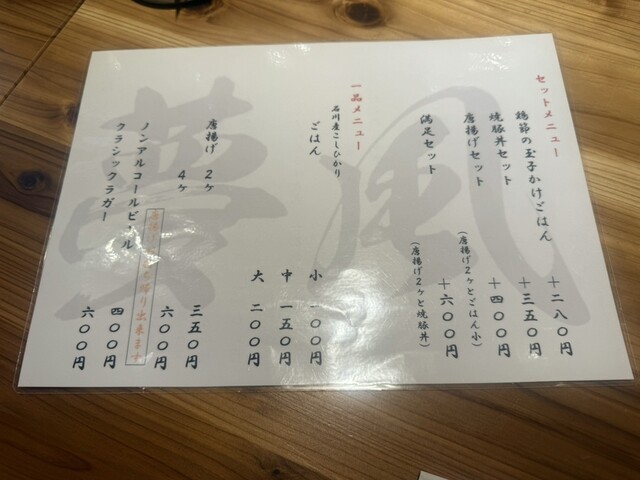 セットメニュー
鶏節の玉子かけごはん ＋二八〇円
焼豚丼セット ＋三五〇円
唐揚げセット ＋四〇〇円
(唐揚げ２ヶとごはん小)
満足セット ＋六〇〇円
(唐揚げ２ヶと焼豚丼)
一品メニュー
石川産こしひかり
ごはん
小 一〇〇円
中 一五〇円
大 二〇〇円
唐揚げ ２ヶ 三五〇円
４ヶ 六〇〇円
出来ます
ノンアルコールビール 四〇〇円
クラシックラガー 六〇〇円
夢風